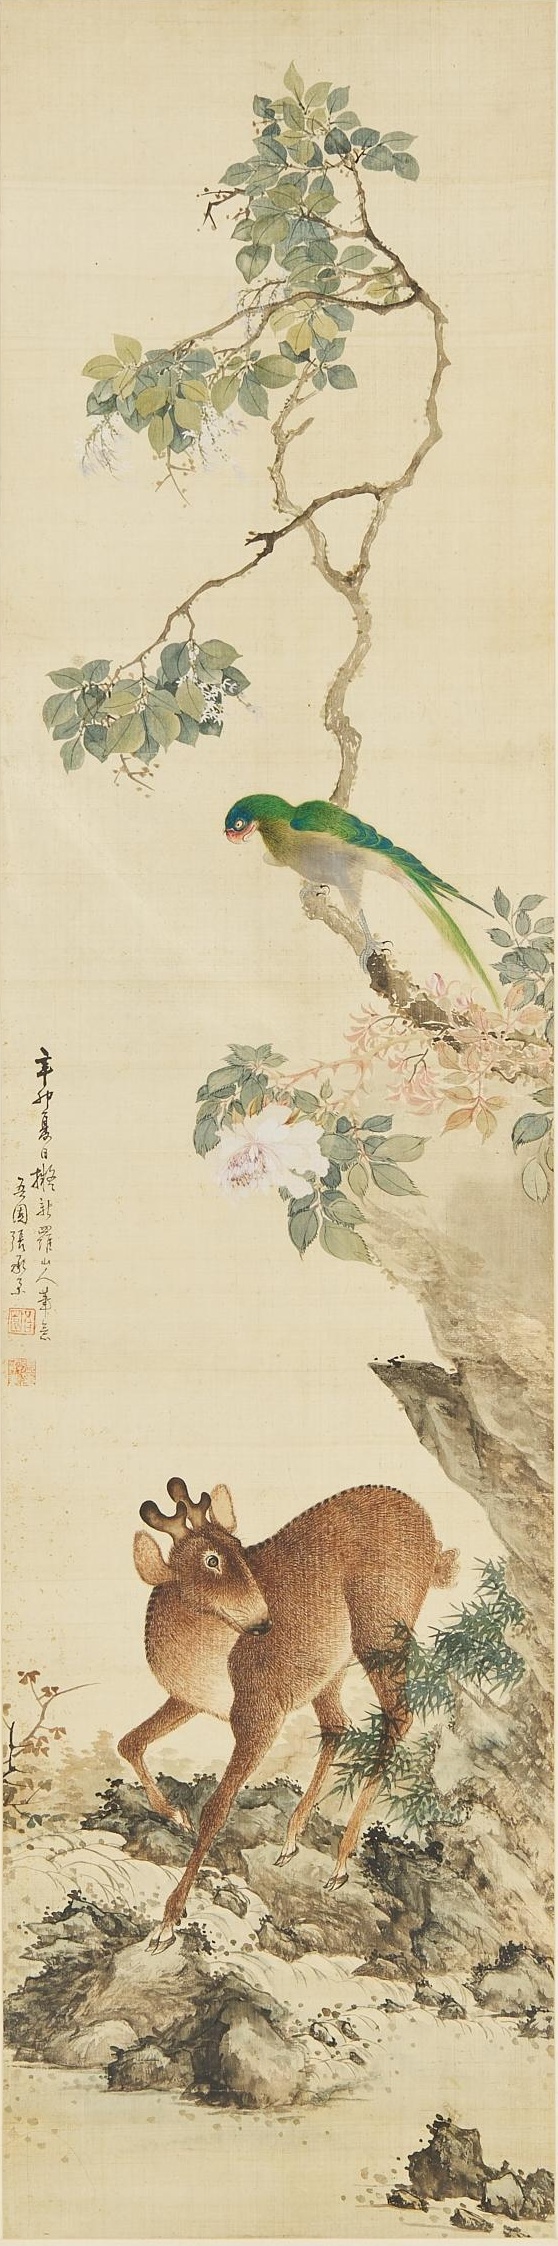 辛卯夏日擬新羅山人筆意
吾園張承